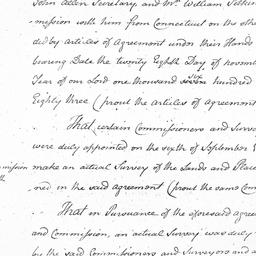 John Allen Secretary and Mr. William
mission with him from Connecticut on the othe
ded by articles of Agreement under their Hands
bearing Date the twenty Eighth Day of novem
Year of our Lord one thousand six hundred
Eighty three (prout the articles of agreement
That certain Commissioners and Surve
were duly appointed on the sixth of September
mission make an actual Survey of the Lands and Place
ned in the said agreement (prout the same Com
That in Pursuance of the aforesaid agree
and Commission, an actual Survey was duly
by the said Commissioners and Surveyors and a